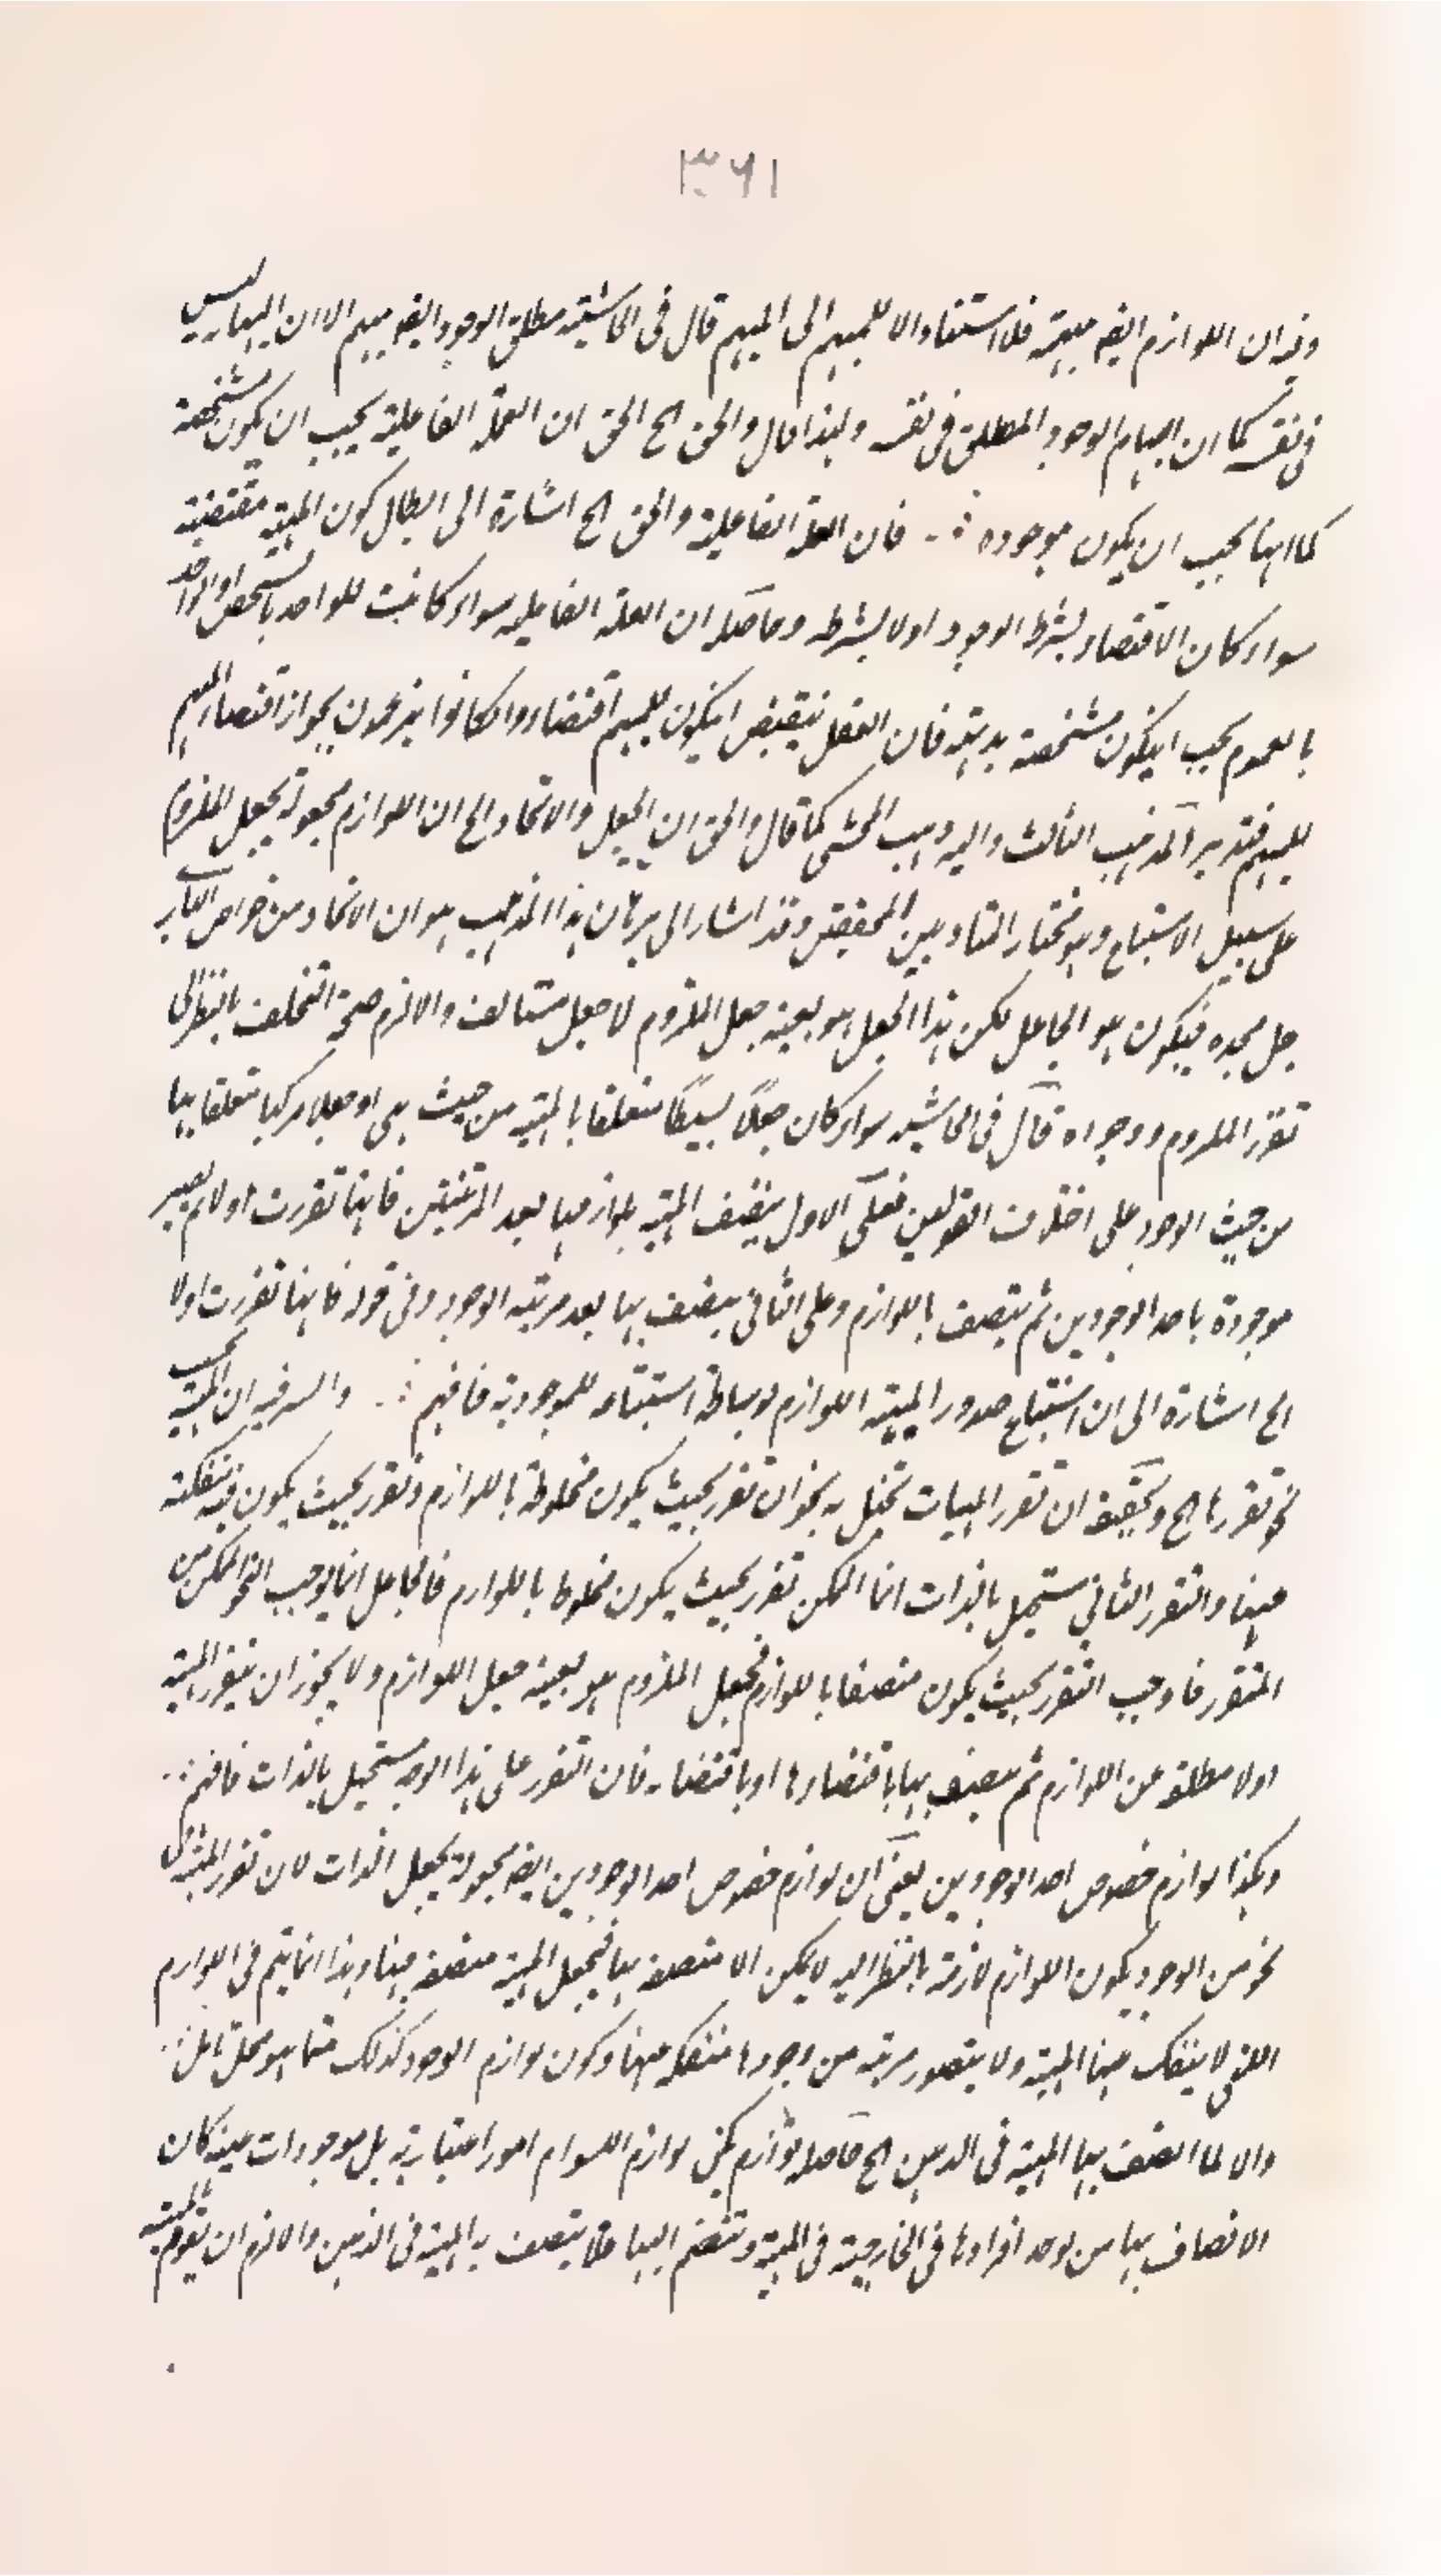 ٣٦١
وفيه ان اللوازم ايضا مبهمة فلا استناد الا للمبهم الى المبهم قال فى الحاشية مطلق الوجود ايضا مبهم الا ان ابهامه ليس
فى نفسه كما ان ابهام الوجود المطلق فى نفسه ولهذا قال والحق الخ الحق ان العلة الفاعلية يجب ان يكون مشخصة
كما انها يجب ان يكون موجوده فان العلة الفاعلية والحق الخ اشارة الى ابطال كون المهية مقتضية
سواء كان الاقتضاء بشرط الوجود اولا بشرطه وحاصله ان العلة الفاعلية سواء كانت للواحد بالشخص او الواحد
بالعموم يجب ايكون مشخصة بديهة فان العقل ينقبض ايكون للمبهم اقتضاء وان كانوا يزعمون بجواز اقتضاء المبهم
للمبهم فتدبر المذهب الثالث واليه ذهب المحشى كما قال والحق ان الجعل والاتحاد الخ ان اللوازم مجعولة بجعل الملزوم
على سبيل الاستتباع وهو مختار المتأ وبين المحققين وقد اشار الى برهان هذا المذهب هو ان الاتحاد من خواص البارى
جل مجده فيكون هو الجاعل لكن هذا الجعل هو بعينه جعل الملزوم لا جعل مستانف والا لزم صحة التخلف بالنظر الى
تقرر الملزوم ووجوده قال فى الحاشيه سواء كان جعلا بسيطا متعلقا بالمهية من حيث هى او جعلا مركبا متعلقا بها
من حيث الوجود على اختلاف القولين فعلى الاول يتصف المهية بلوازمها بعد المرتبتين فانها تقررت اولا ثم تصير
موجودة باحد الوجودين ثم يتصف باللوازم وعلى الثانى يتصف بها بعد مرتبة الوجود وفى قوله فانها تقررت اولا
الخ اشارة الى ان استتباع صدور المهية اللوازم بوساطة استتباعه للموجودية فافهم والسر فيه ان المهية بحسب
نحو تقررها الخ وتحقيقه ان تقرر المهيات تخيل به نحوان تقرر بحيث يكون مخلوطة باللوازم وتقرر بحيث يكون فيه منفكة
عنها والتقرر الثانى مستحيل بالذات انما الممكن تقرر بحيث يكون مخلوطا باللوازم فالجاعل انما يوجب النحو الممكن من
التقرر فاوجب التقرر بحيث يكون متصفا باللوازم فجعل الملزوم هو بعينه جعل اللوازم ولا يجوز ان يتقرر المهية
اولا مطلقة عن اللوازم ثم يتصف بها باقتضاءها او باقتضائه فان التقرر على هذا الوجه مستحيل بالذات فافهم
وهكذا لوازم خصوص احد الوجودين يعنى ان لوازم خصوص احد الوجودين ايضا مجعولة بجعل الذات لان تقرر المهية فى
نحو من الوجود يكون اللوازم لازمة بالنظر اليه لا يمكن الا متصفة بها فيجعل المهية متصفة بها وهذا انما يتم فى اللوازم
التى لا ينفك عنها المهية ولا يتصور مرتبة من وجودها منفكة عنها وكون لوازم الوجود كذلك متما هو محل تامل
والا لما اتصف بها المهية فى الذهن الخ حاصله لو لم يكن لوازم اللوازم امورا اعتبارية بل موجودات عينية كان
الاتصاف بها من لوحد افرادها فى الخارجية فى المهية وتنضم اليها فلا يتصف به المهية فى الذهن والا لزم ان يقوم بالمهية